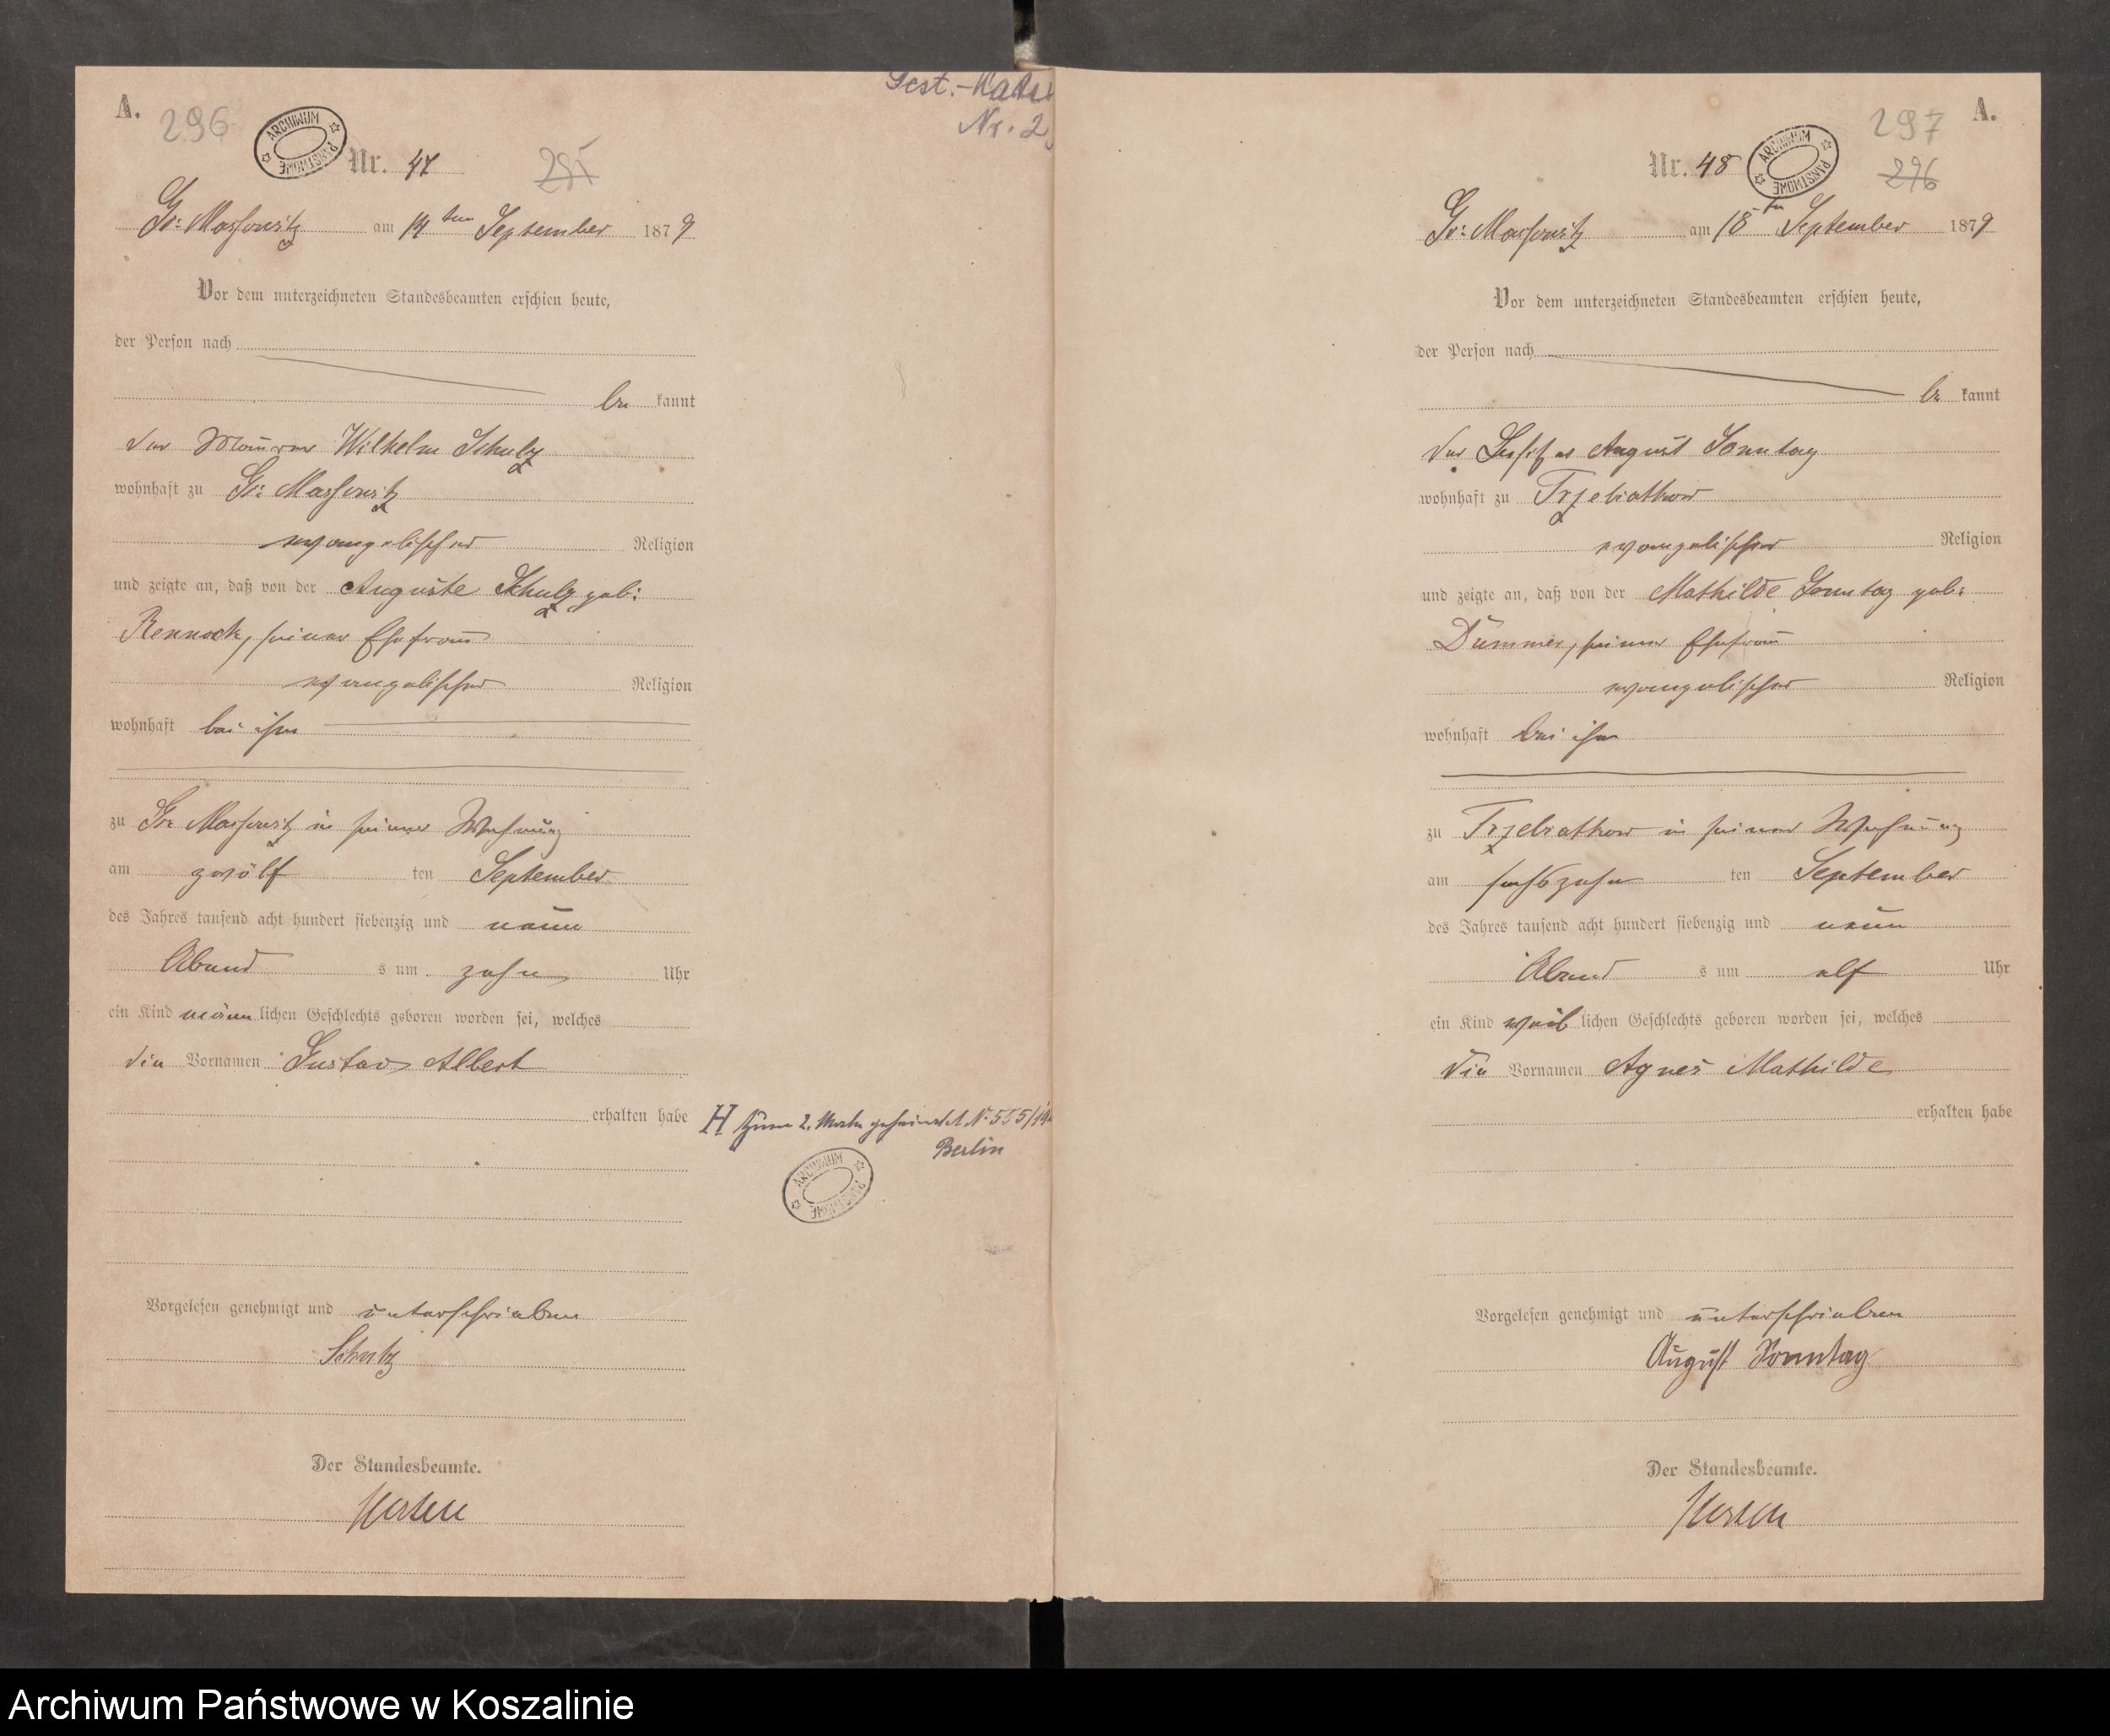 A.
296
ARCHIWUM PAŃSTWOWE
Nr. 47
295
Gest.-
Nr. 2
Gr: Massowitz am 14ten September 1879
Vor dem unterzeichneten Standesbeamten erschien heute,
der Person nach
be kannt
der Maurer Wilhelm Schulz
wohnhaft zu Gr: Massowitz
evangelischer Religion
und zeigte an, daß von der Auguste Schulz geb:
Rennock, seiner Ehefrau
evangelischer Religion
wohnhaft bei ihm
zu Gr: Massowitz in seiner Wohnung
am zwölf ten September
des Jahres tausend acht hundert siebenzig und neun
Abend s um zehn Uhr
ein Kind männ lichen Geschlechts geboren worden sei, welches
die Vornamen Gustav Albert
erhalten habe
H zum 2. Male geheiratet Nr. 555/
Berlin
ARCHIWUM PAŃSTWOWE
Vorgelesen genehmigt und unterschrieben
Schulz
Der Standesbeamte.
A.
297
296
Nr. 48
ARCHIWUM PAŃSTWOWE
Gr: Massowitz am 18ten September 1879
Vor dem unterzeichneten Standesbeamten erschien heute,
der Person nach
be kannt
der Besitzer August Sonntag
wohnhaft zu Trzebiatkow
evangelischer Religion
und zeigte an, daß von der Mathilde Sonntag geb:
Dümmer, seiner Ehefrau
evangelischer Religion
wohnhaft bei ihm
zu Trzebiatkow in seiner Wohnung
am sechszehn ten September
des Jahres tausend acht hundert siebenzig und neun
Abend s um elf Uhr
ein Kind weib lichen Geschlechts geboren worden sei, welches
die Vornamen Agnes Mathilde
erhalten habe
Vorgelesen genehmigt und unterschrieben
August Sonntag
Der Standesbeamte.
Archiwum Państwowe w Koszalinie